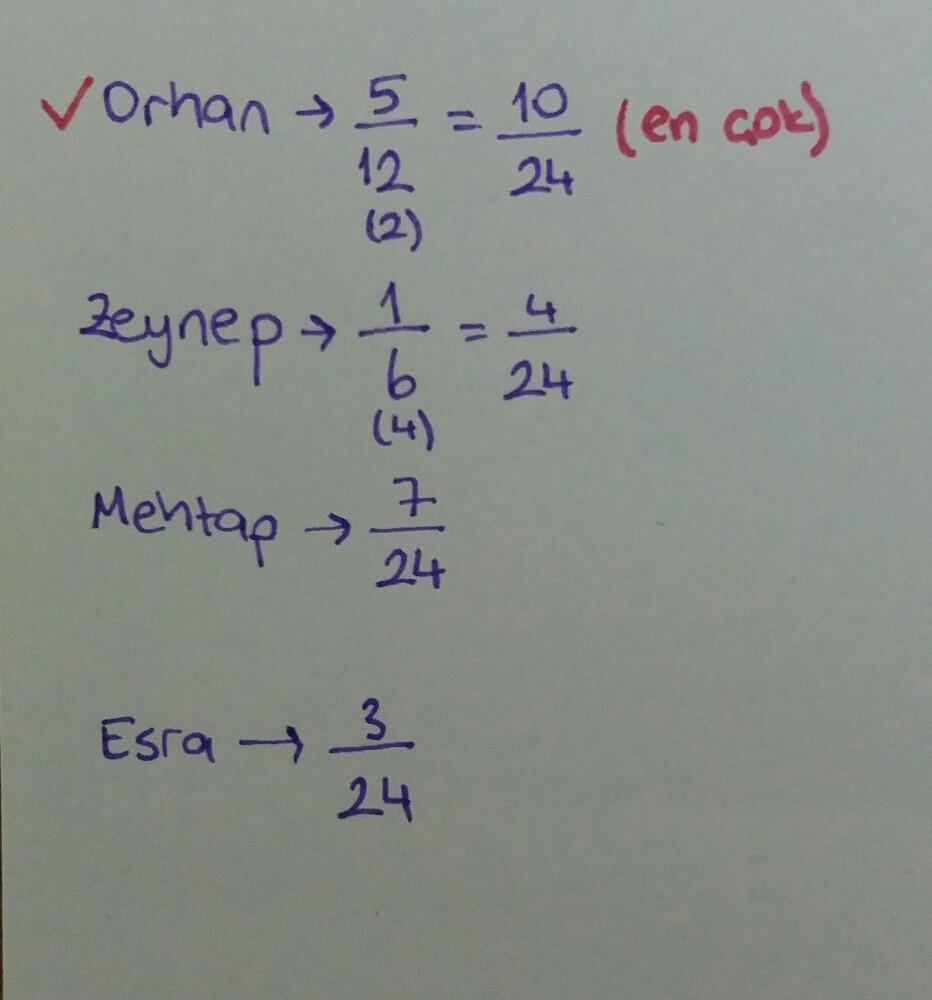 ✓Orhan → 5/12 = 10/24 (en çok)
(2)
Zeynep → 1/6 = 4/24
(4)
Mehtap → 7/24
Esra → 3/24